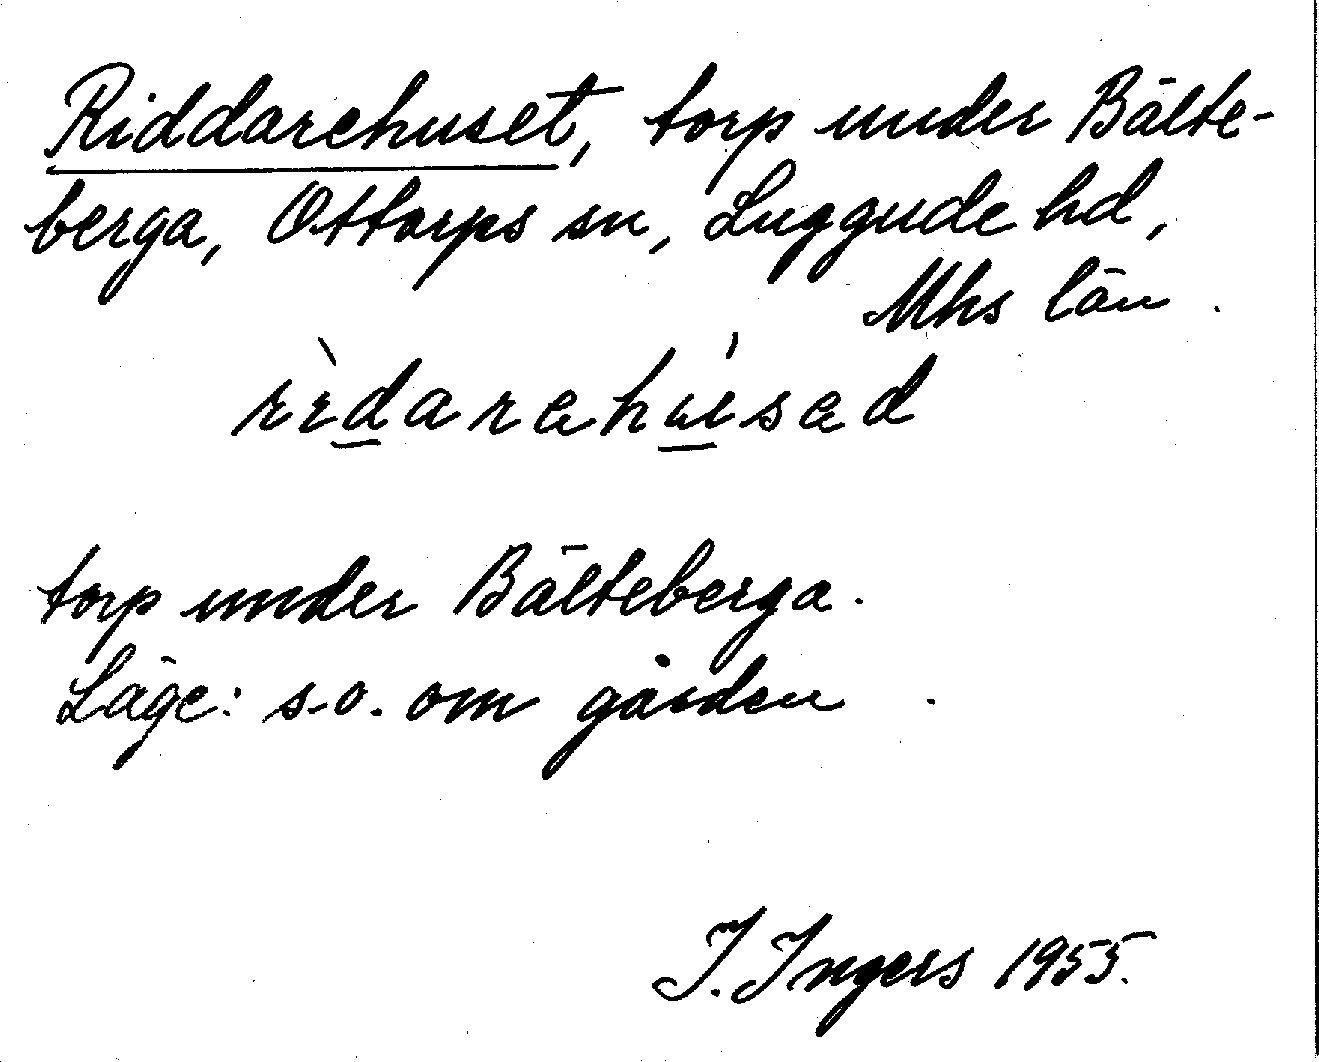 Riddarehuset, torp under Bälte-
berga, Ottarps sn, Luggude hd,
Mhs län.
torp under Bälteberga.
Läge: s.o. om gården.
I. Ingers 1955.